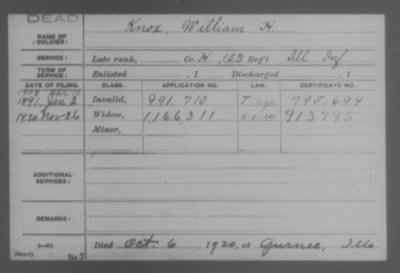 DEAD
NAME OF SOLDIER: Knox, William H.
SERVICE: Late rank, Co. H, 153 Reg't Ill Inf
TERM OF SERVICE: Enlisted , 1 Discharged , 1
DATE OF FILING. CLASS. APPLICATION NO. LAW. CERTIFICATE NO.
1891 Jan 2 Invalid, 991.710 T age 795.694
1920 Nov 26 Widow, 1,166,311 5-1-20 913795
Minor,
ADDITIONAL SERVICES:
REMARKS:
Died Oct. 6, 1920, at Gurnee, Ills.